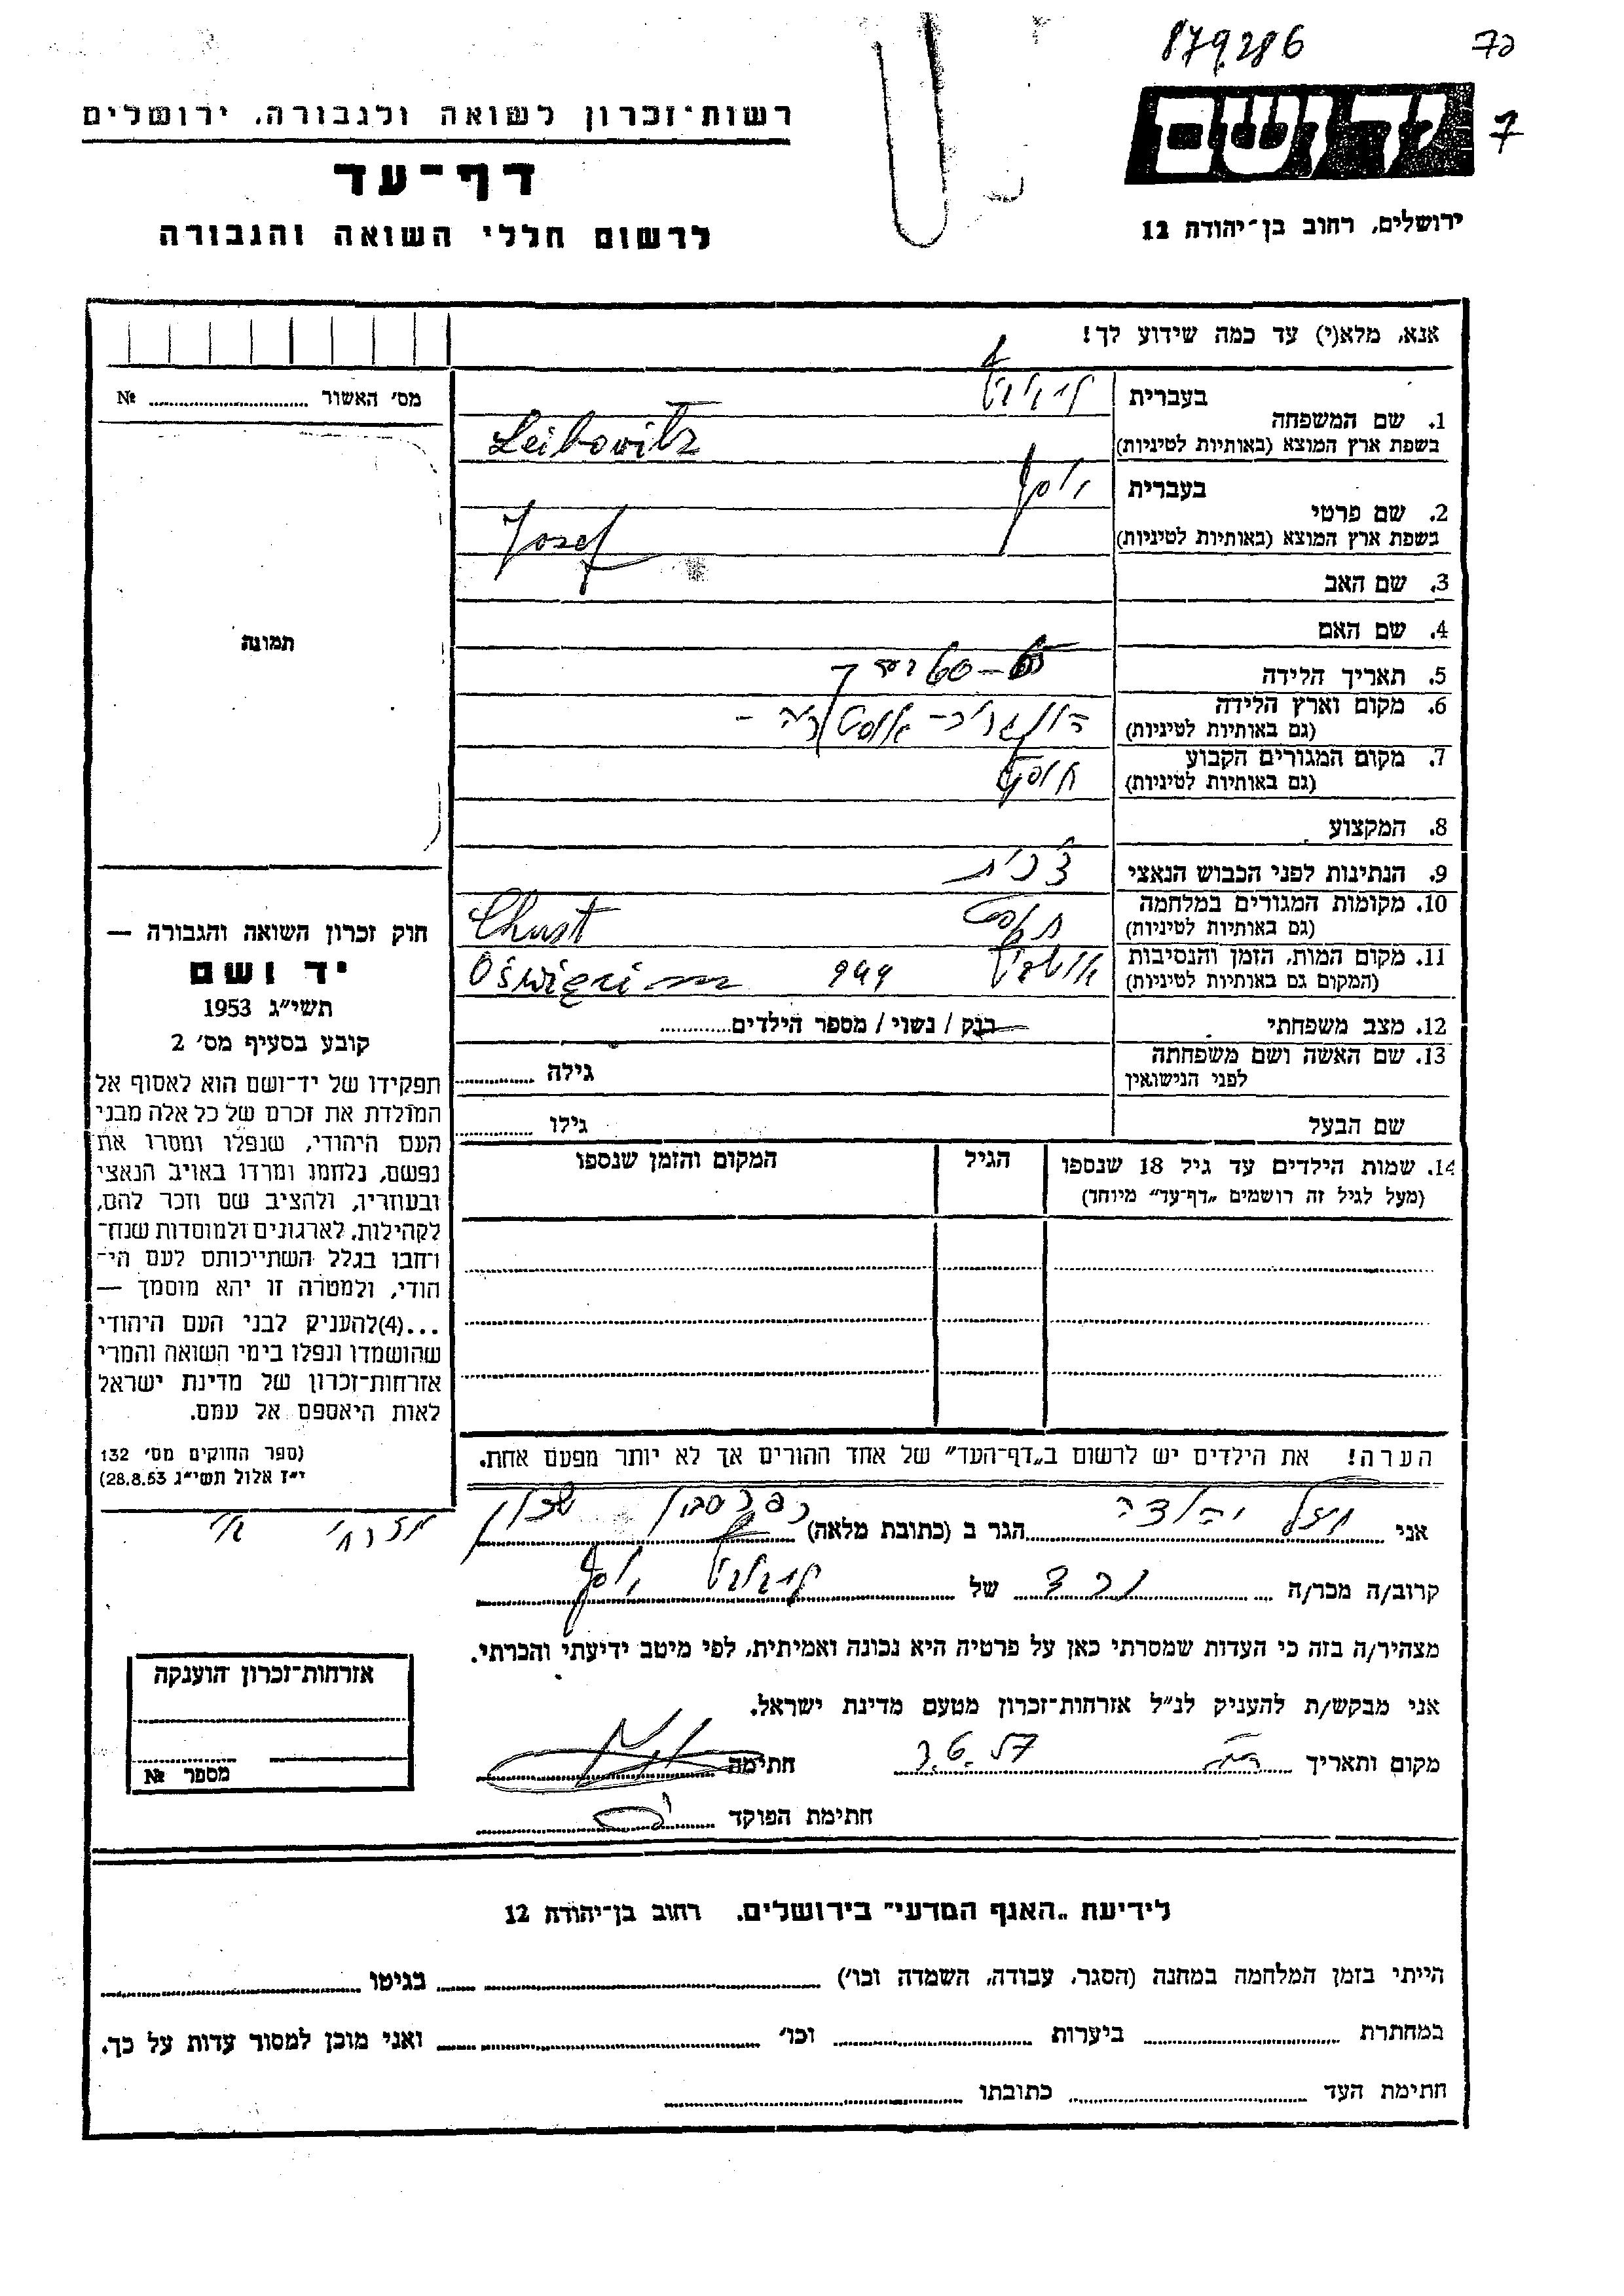 879286
70
7
יד ושם
ירושלים, רחוב בן־יהודה 12
רשות־זכרון לשואה ולגבורה, ירושלים
דף־עד
לרשום חללי השואה והגבורה
אנא, מלא(י) עד כמה שידוע לך!
בעברית
1. שם המשפחה
בשפת ארץ המוצא (באותיות לטיניות) Leibowitz
בעברית יוסף
2. שם פרטי
בשפת ארץ המוצא (באותיות לטיניות) Josef
3. שם האב
4. שם האם
5. תאריך הלידה
6. מקום וארץ הלידה
(גם באותיות לטיניות)
7. מקום המגורים הקבוע חוסט
(גם באותיות לטיניות)
8. המקצוע
9. הנתינות לפני הכבוש הנאצי צ'כית
10. מקומות המגורים במלחמה חוסט Chust
(גם באותיות לטיניות)
11. מקום המות, הזמן והנסיבות 944 Oświęcim
(המקום גם באותיות לטיניות)
12. מצב משפחתי רווק / נשוי / מספר הילדים
13. שם האשה ושם משפחתה גילה
לפני הנישואין
שם הבעל גילו
14. שמות הילדים עד גיל 18 שנספו הגיל המקום והזמן שנספו
(מעל לגיל זה רושמים „דף־עד״ מיוחד)
הערה! את הילדים יש לרשום ב„דף־העד״ של אחד ההורים אך לא יותר מפעם אחת.
מס׳ האשור №
תמונה
חוק זכרון השואה והגבורה —
יד ושם
תשי״ג 1953
קובע בסעיף מס׳ 2
תפקידו של יד־ושם הוא לאסוף אל
המולדת את זכרם של כל אלה מבני
העם היהודי, שנפלו ומסרו את
נפשם, נלחמו ומרדו באויב הנאצי
ובעוזריו, ולהציב שם וזכר להם,
לקהילות, לארגונים ולמוסדות שנח־
רבו בגלל השתייכותם לעם הי־
הודי, ולמטרה זו יהא מוסמך —
...(4)להעניק לבני העם היהודי
שהושמדו ונפלו בימי השואה והמרי
אזרחות־זכרון של מדינת ישראל
לאות היאספם אל עמם.
(ספר החוקים מס׳ 132
י״ז אלול תשי״ג 28.8.53)
אני הגר ב (כתובת מלאה) כפר סבא שכון
מזרחי
קרוב/ה מכר/ה נכד של יוסף
מצהיר/ה בזה כי העדות שמסרתי כאן על פרטיה היא נכונה ואמיתית, לפי מיטב ידיעתי והכרתי.
אני מבקש/ת להעניק לנ״ל אזרחות־זכרון מטעם מדינת ישראל.
מקום ותאריך 2.6.57 חתימה
חתימת הפוקד
אזרחות־זכרון הוענקה
מספר №
לידיעת „האגף המדעי״ בירושלים, רחוב בן־יהודה 12
הייתי בזמן המלחמה במחנה (הסגר, עבודה, השמדה וכו׳) בגיטו
במחתרת ביערות וכו׳ ואני מוכן למסור עדות על כך.
חתימת העד כתובתו